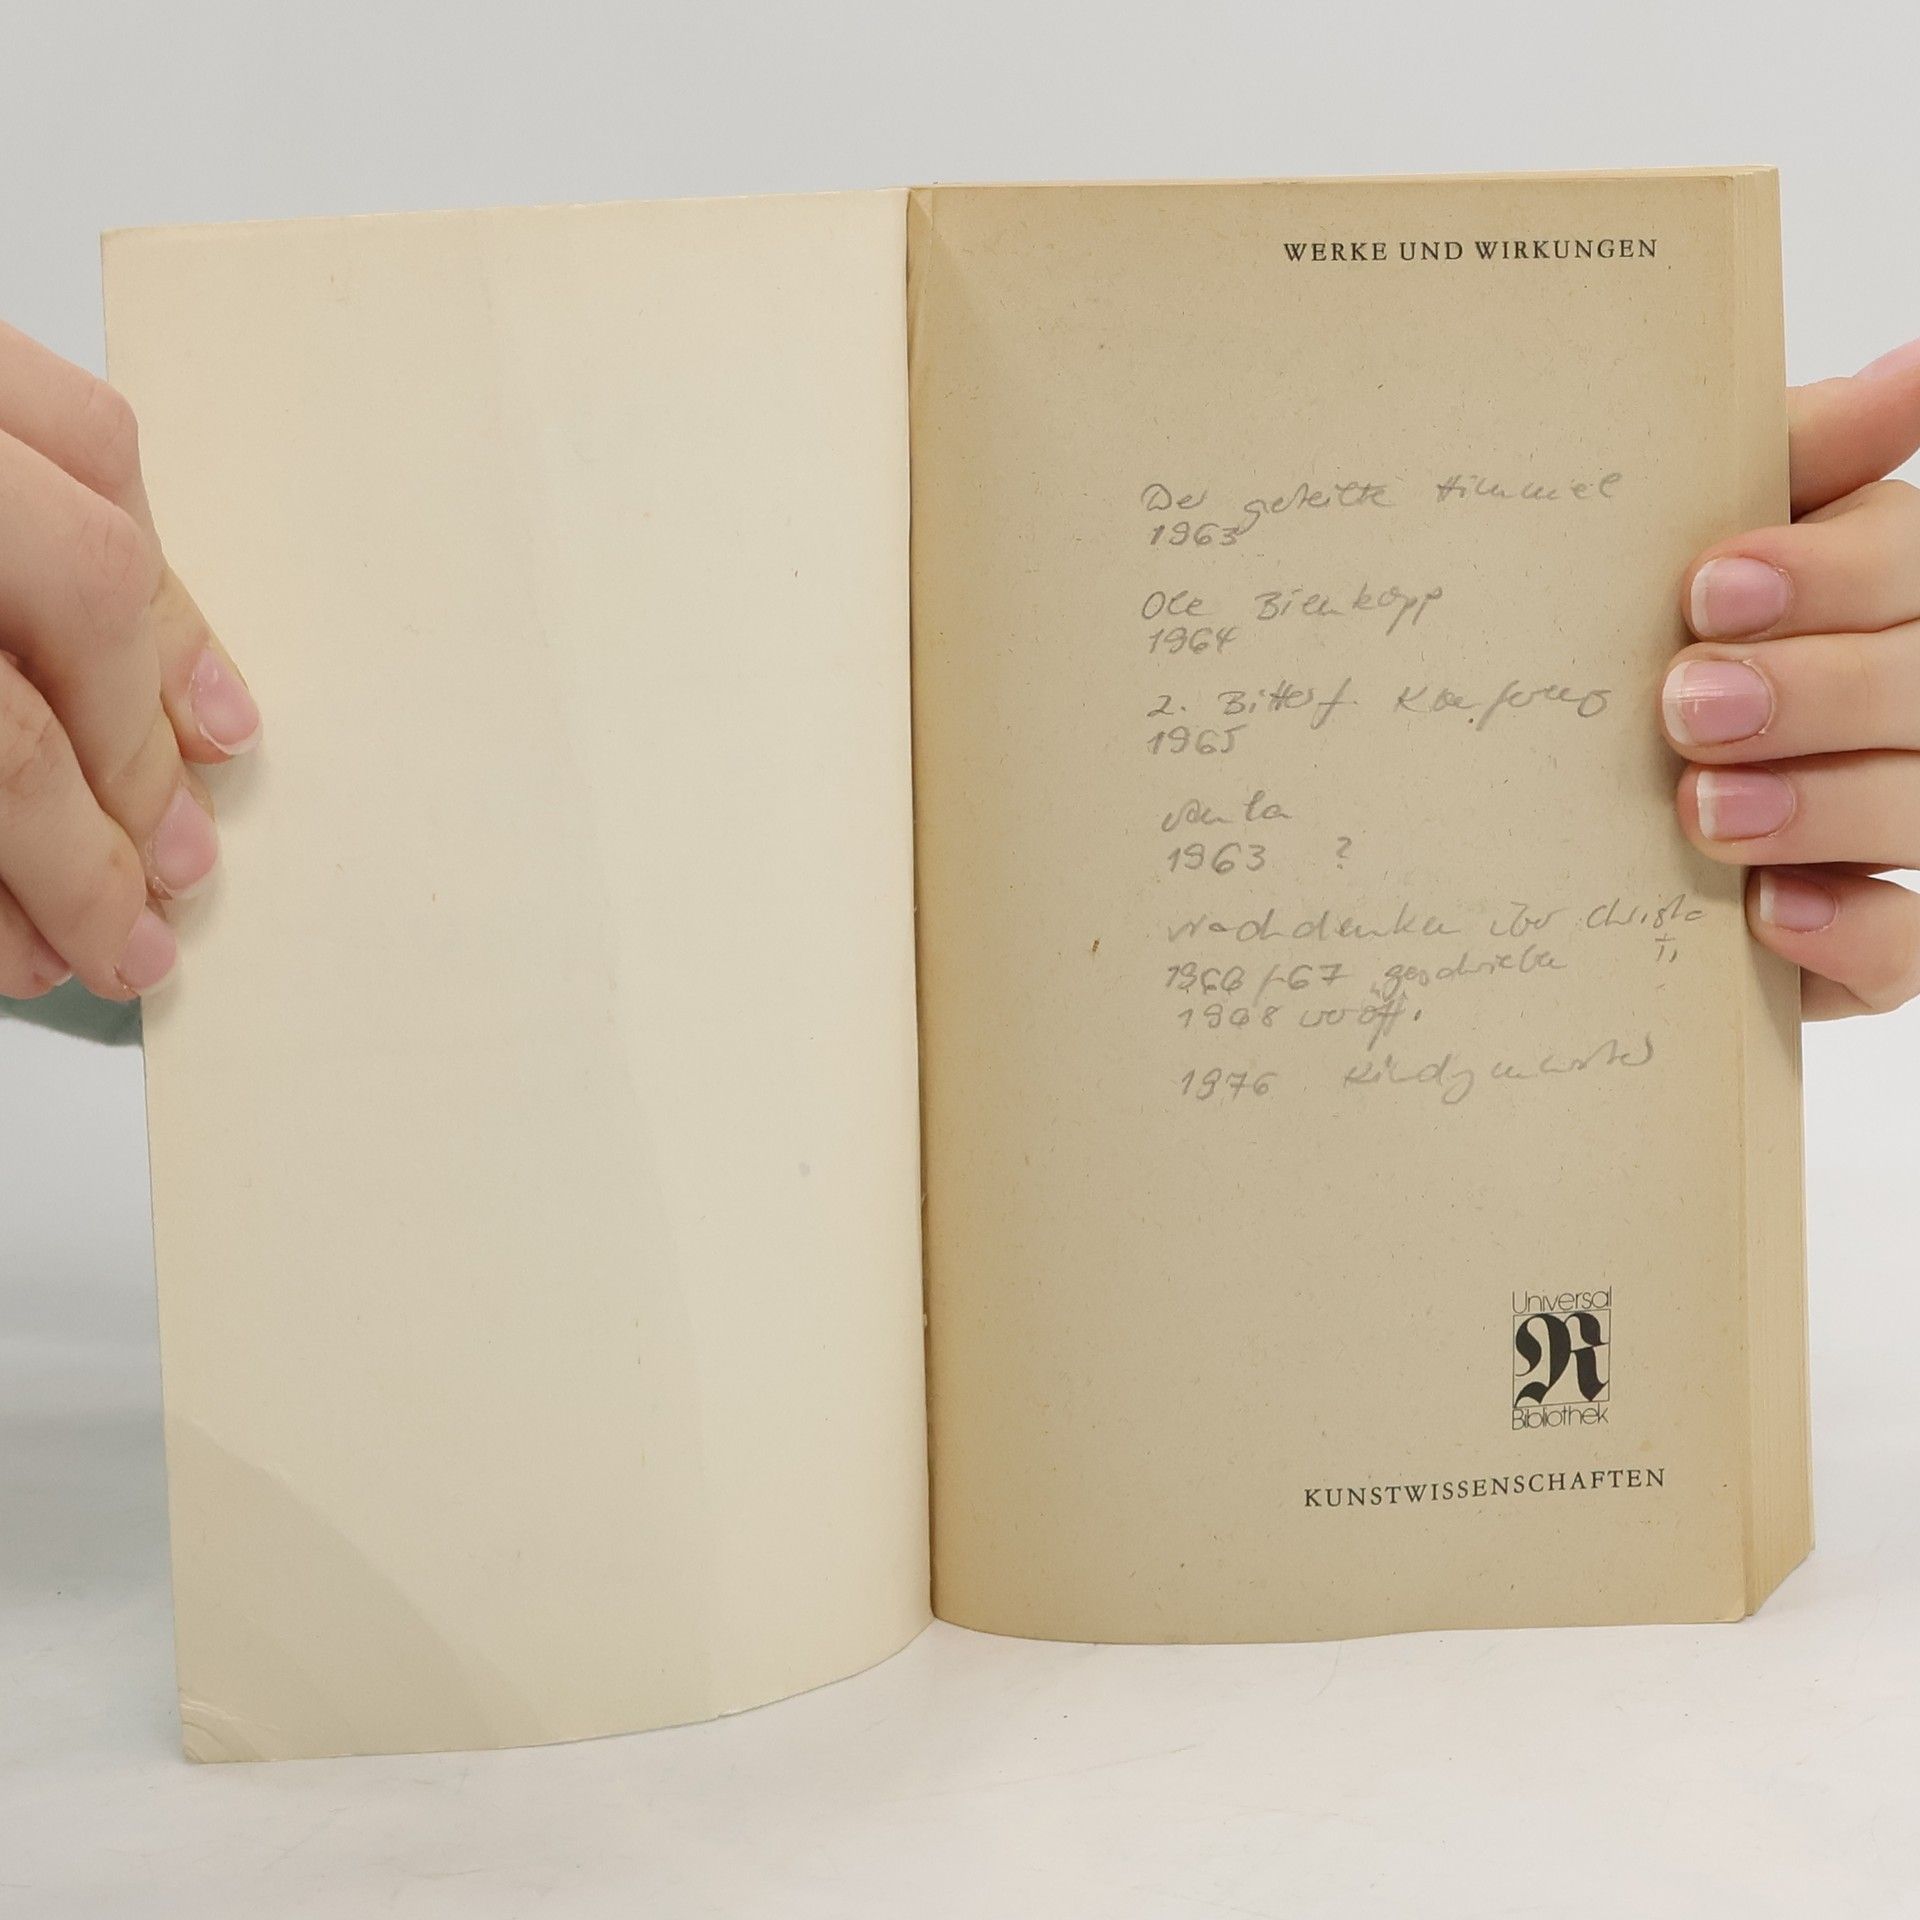 WERKE UND WIRKUNGEN
Der geteilte Himmel
1963
Ole Bienkopp
1964
2. Bitterf. Konferenz
1965
1963 ?
Nachdenken über Christa
T.
1966/-67 geschrieben
1968 veröff.
1976 Kindh.muster
Universal
R
Bibliothek
KUNSTWISSENSCHAFTEN